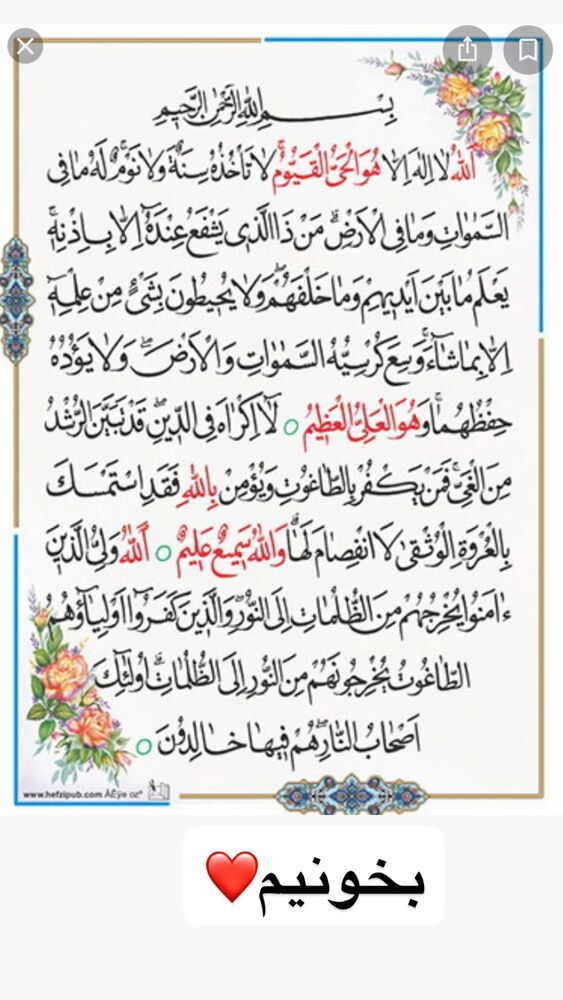 بِسْمِ اللهِ الرَّحْمٰنِ الرَّحِيمِ
اَللهُ لا اِلهَ اِلا هُوَ الْحَىُّ الْقَيُّومُ لا تَأخُذُهُ سِنَةٌ وَلا نَوْمٌ لَهُ مافِى
السَّمٰوٰاتِ وَمافِى الْاَرْضِ مَنْ ذَا الَّذى يَشْفَعُ عِنْدَهُ اِلاّ بِاِذْنِهِ
يَعْلَمُ مابَيْنَ اَيْديهِمْ وَماخَلْفَهُمْ وَلا يُحيطُونَ بِشَىْءٍ مِنْ عِلْمِهِ
اِلاّ بِماشاءَ وَسِعَ كُرْسِيُّهُ السَّمٰوٰاتِ وَالْاَرْضَ وَلا يَؤُدُهُ
حِفْظُهُما وَهُوَ الْعَلِىُّ الْعَظيمُ ○ لا اِكْراهَ فِى الدّينِ قَدْ تَبَيَّنَ الرُّشْدُ
مِنَ الْغَىِّ فَمَنْ يَكْفُرْ بِالطّاغُوتِ وَيُؤْمِنْ بِاللهِ فَقَدِ اسْتَمْسَكَ
بِالْعُرْوَةِ الْوُثْقىٰ لاَ انْفِصامَ لَها وَاللهُ سَميعٌ عَليمٌ ○ اَللهُ وَلِىُّ الَّذينَ
ءامَنُوا يُخْرِجُهُمْ مِنَ الظُّلُماتِ اِلَى النُّورِ وَالَّذينَ كَفَرُوا اَوْلِياؤُهُمُ
الطّاغُوتُ يُخْرِجُونَهُمْ مِنَ النُّورِ اِلَى الظُّلُماتِ اُولٰئِكَ
اَصْحابُ النّارِ هُمْ فيها خالِدُونَ ○
www.hefzipub.com
بخونیم❤️